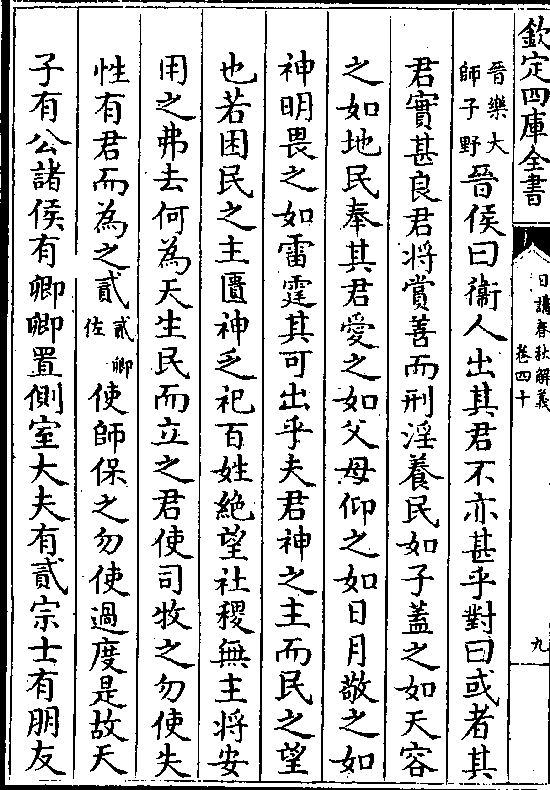 欽定四庫全書
日講春秋解義
卷四十
九
晉樂大
師子野
晉侯曰衞人出其君不亦甚乎對曰或者其
君實甚良君將賞善而刑淫養民如子蓋之如天容
之如地民奉其君愛之如父母仰之如日月敬之如
神明畏之如雷霆其可出乎夫君神之主而民之望
也若困民之主匱神乏祀百姓絶望社稷無主將安
用之弗去何為天生民而立之君使司牧之勿使失
性有君而為之貳
貳卿
佐
使師保之勿使過度是故天
子有公諸侯有卿卿置側室大夫有貳宗士有朋友